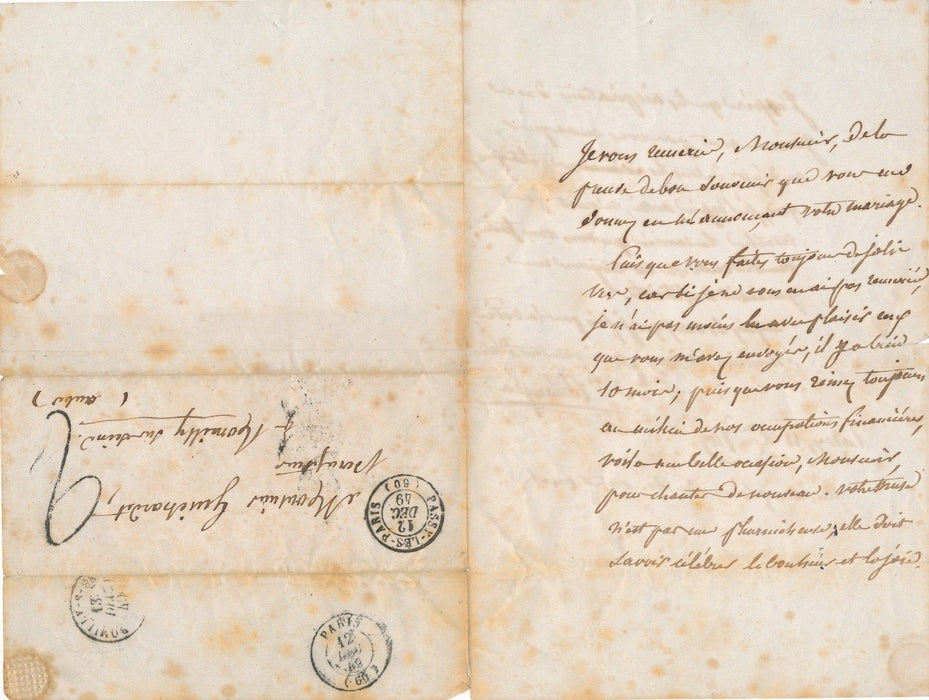 Je vous remercie, Monsieur, de la
preuve de bon souvenir que vous me
donnez en m'annonçant votre mariage.
Puisque vous faites toujours de jolis
vers, car si je ne vous en ai pas remercié,
je n'ai pas moins lu avec plaisir ceux
que vous m'avez envoyés, il y a bien
10 mois, puisque vous rimez toujours
au milieu de vos occupations financières,
voilà une belle occasion, Monsieur,
pour chanter de nouveau. votre Muse
n'est pas une; elle doit
savoir célébrer le bonheur et la joie.
Monsieur Guichard,
Percepteur
à Romilly sur Seine.
(aube)
PASSY-LES-PARIS (60)
12
DEC.
49
PARIS
12
DEC
49
(60)
ROMILLY-S-S
13
DEC